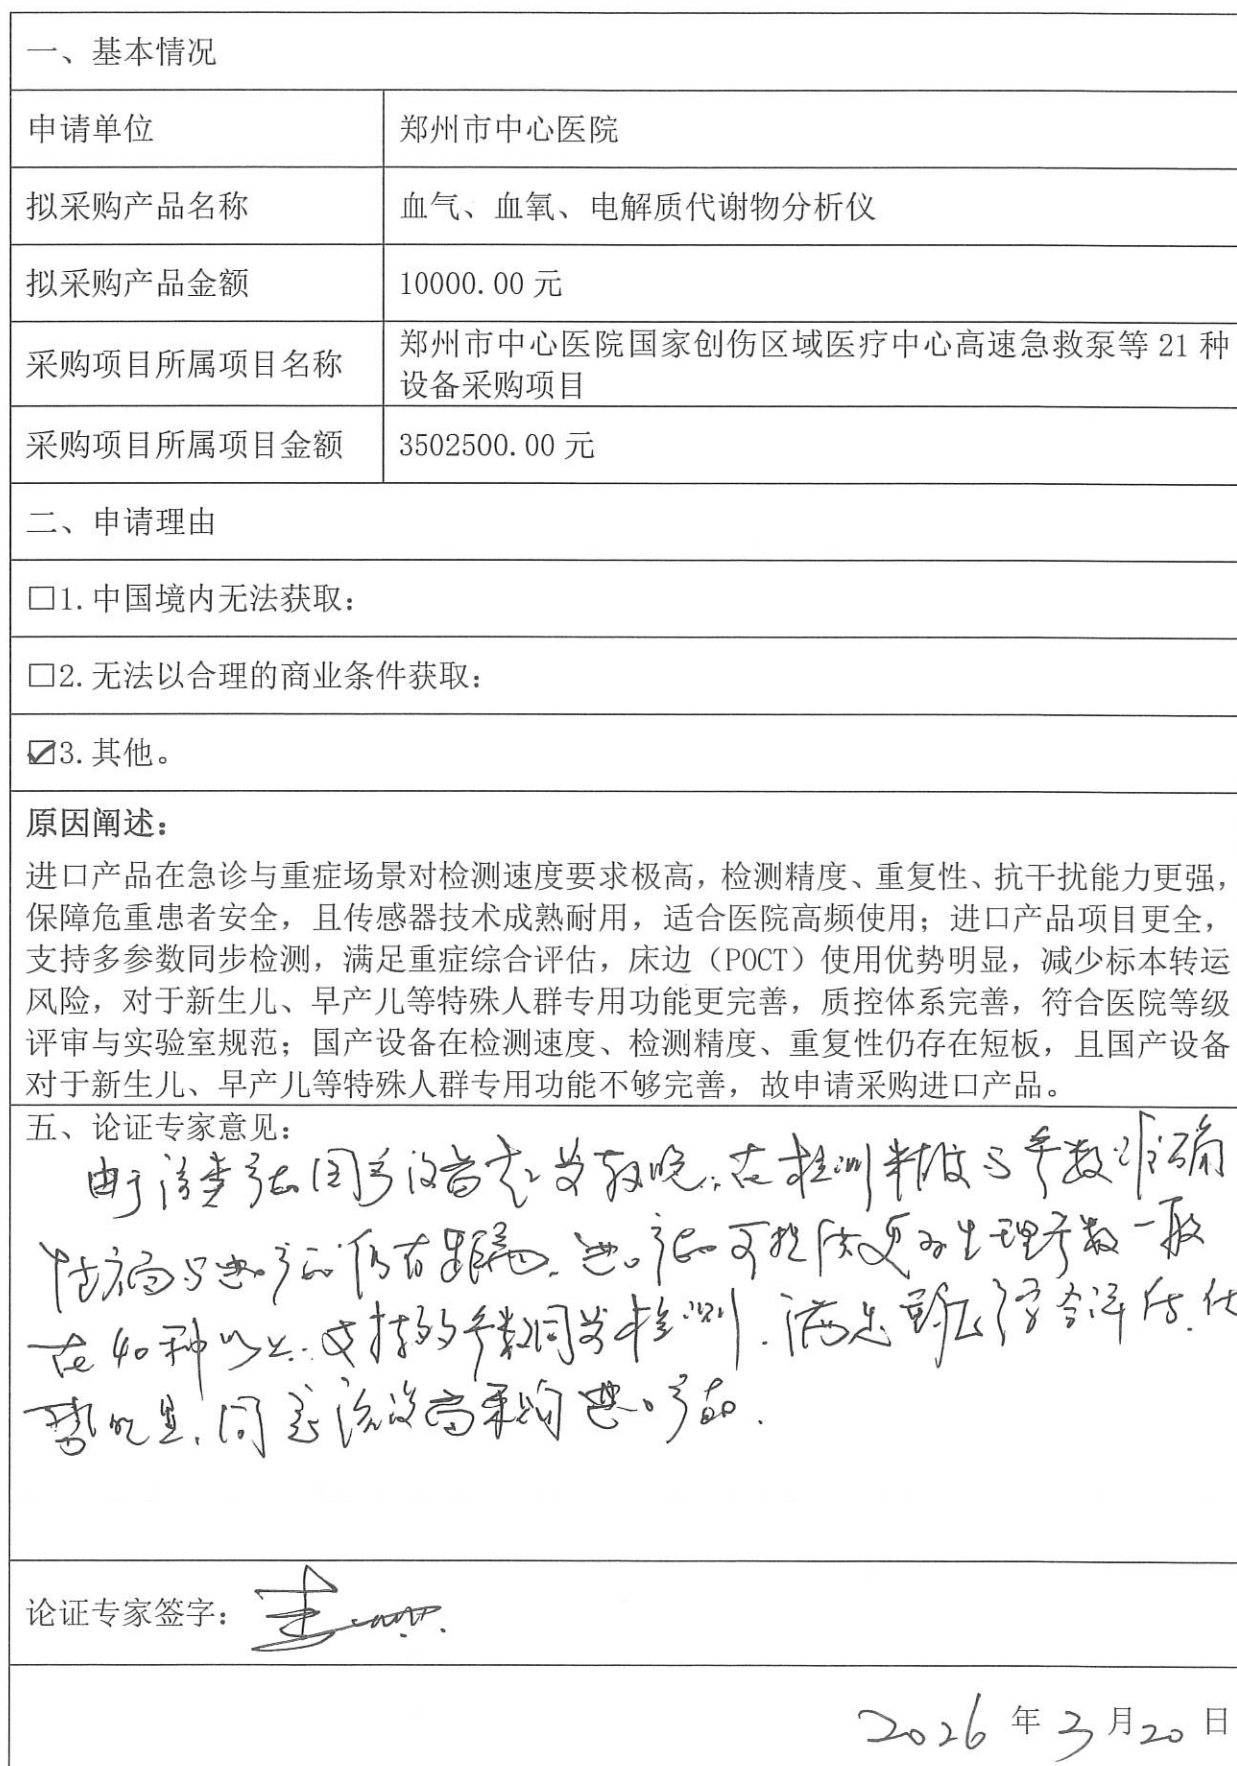 一、基本情况
申请单位 郑州市中心医院
拟采购产品名称 血气、血氧、电解质代谢物分析仪
拟采购产品金额 10000.00 元
采购项目所属项目名称 郑州市中心医院国家创伤区域医疗中心高速急救泵等 21 种
设备采购项目
采购项目所属项目金额 3502500.00 元
二、申请理由
□1.中国境内无法获取：
□2.无法以合理的商业条件获取：
☑3.其他。
原因阐述：
进口产品在急诊与重症场景对检测速度要求极高，检测精度、重复性、抗干扰能力更强，
保障危重患者安全，且传感器技术成熟耐用，适合医院高频使用；进口产品项目更全，
支持多参数同步检测，满足重症综合评估，床边（POCT）使用优势明显，减少标本转运
风险，对于新生儿、早产儿等特殊人群专用功能更完善，质控体系完善，符合医院等级
评审与实验室规范；国产设备在检测速度、检测精度、重复性仍存在短板，且国产设备
对于新生儿、早产儿等特殊人群专用功能不够完善，故申请采购进口产品。
五、论证专家意见：
由于该类产品国产设备研发较晚，在检测精度与参数准确
性方面与进口产品仍有距离。进口产品可提供更多生理参数一般
在40种以上，支持多参数同步检测，满足重症综合评估，优
势明显，同意该设备采购进口产品。
论证专家签字：
2026 年 3 月 20 日